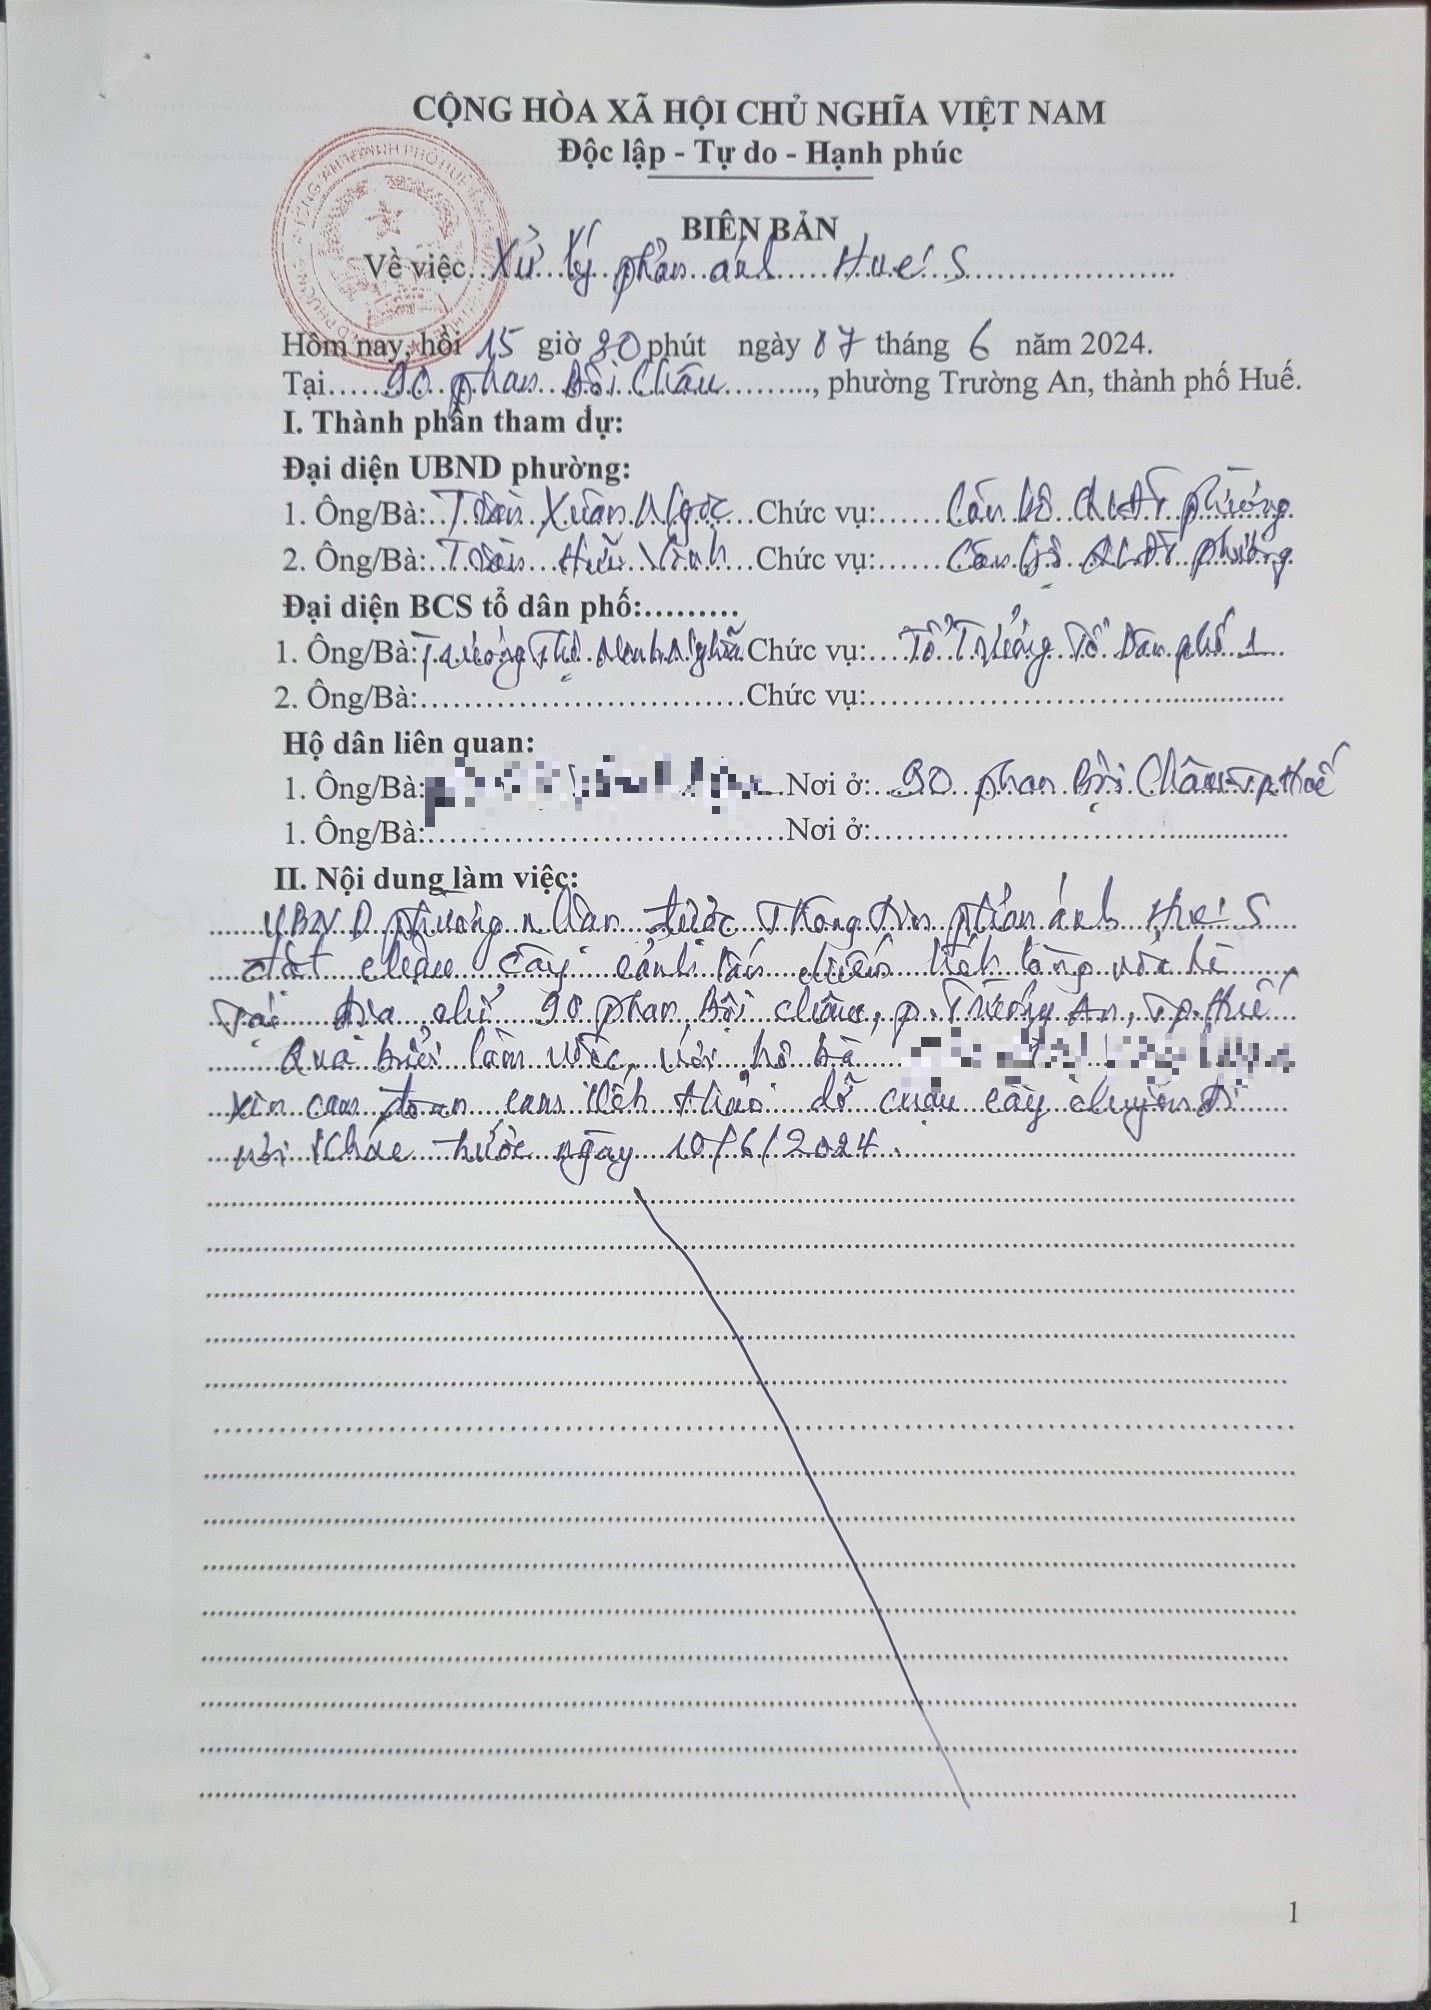 CỘNG HÒA XÃ HỘI CHỦ NGHĨA VIỆT NAM
Độc lập - Tự do - Hạnh phúc
BIÊN BẢN
Về việc Xử lý phản ánh Hue S
Hôm nay, hồi 15 giờ 30 phút ngày 07 tháng 6 năm 2024.
Tại 90 phan Bội Châu, phường Trường An, thành phố Huế.
I. Thành phần tham dự:
Đại diện UBND phường:
1. Ông/Bà: Trần Xuân Ngọc Chức vụ: Cán bộ phường
2. Ông/Bà: Trần Hữu Vinh Chức vụ: Cán bộ phường
Đại diện BCS tổ dân phố:
1. Ông/Bà: Trương Thị Minh Nghĩa Chức vụ: Tổ Trưởng Tổ Dân phố 1
2. Ông/Bà: Chức vụ:
Hộ dân liên quan:
1. Ông/Bà: Nơi ở: 90 phan Bội Châu TP Huế
1. Ông/Bà: Nơi ở:
II. Nội dung làm việc:
UBND phường nhận được Thông tin phản ánh Hue S
đặt chậu cây cảnh lấn chiếm lòng vỉa hè
Tại địa chỉ 90 phan Bội Châu, p. Trường An, TP Huế
Quá buổi làm việc, với hộ bà
xin cam đoan cam kết tháo dỡ chậu cây chuyển đi
nơi khác trước ngày 10/6/2024.
1